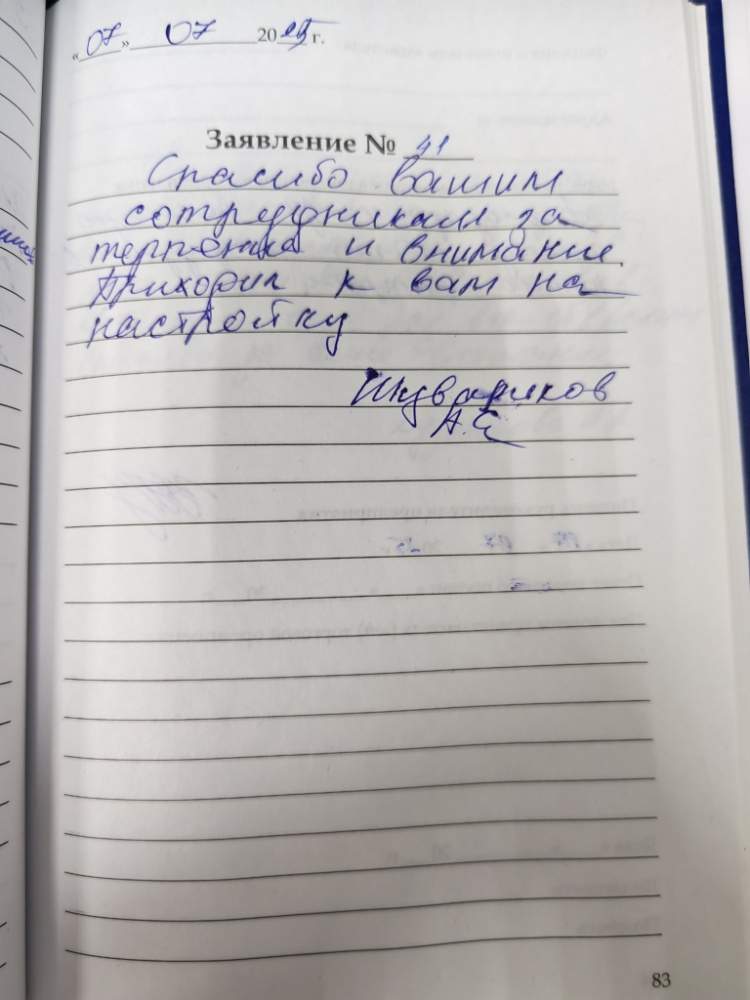 «07» 07 2025 г.
Заявление № 41
Спасибо вашим
сотрудникам за
терпение и внимание.
Приходил к вам на
настройку
Шувариков
А.Е
83